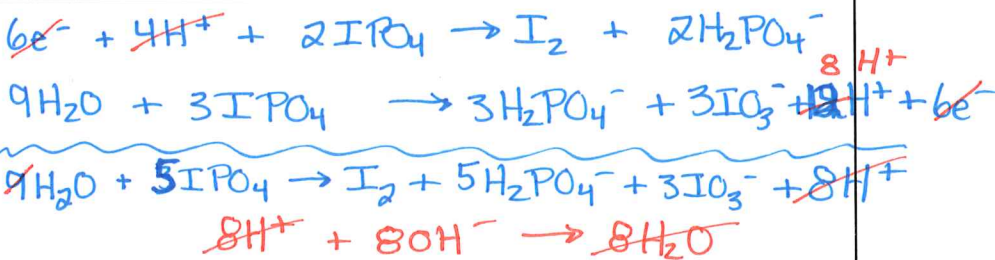 6e⁻ + 4H⁺ + 2IPO₄ → I₂ + 2H₂PO₄⁻
8 H⁺
9H₂O + 3IPO₄ → 3H₂PO₄⁻ + 3IO₃⁻ + 12H⁺ + 6e⁻
9H₂O + 5IPO₄ → I₂ + 5H₂PO₄⁻ + 3IO₃⁻ + 8H⁺
8H⁺ + 8OH⁻ → 8H₂O